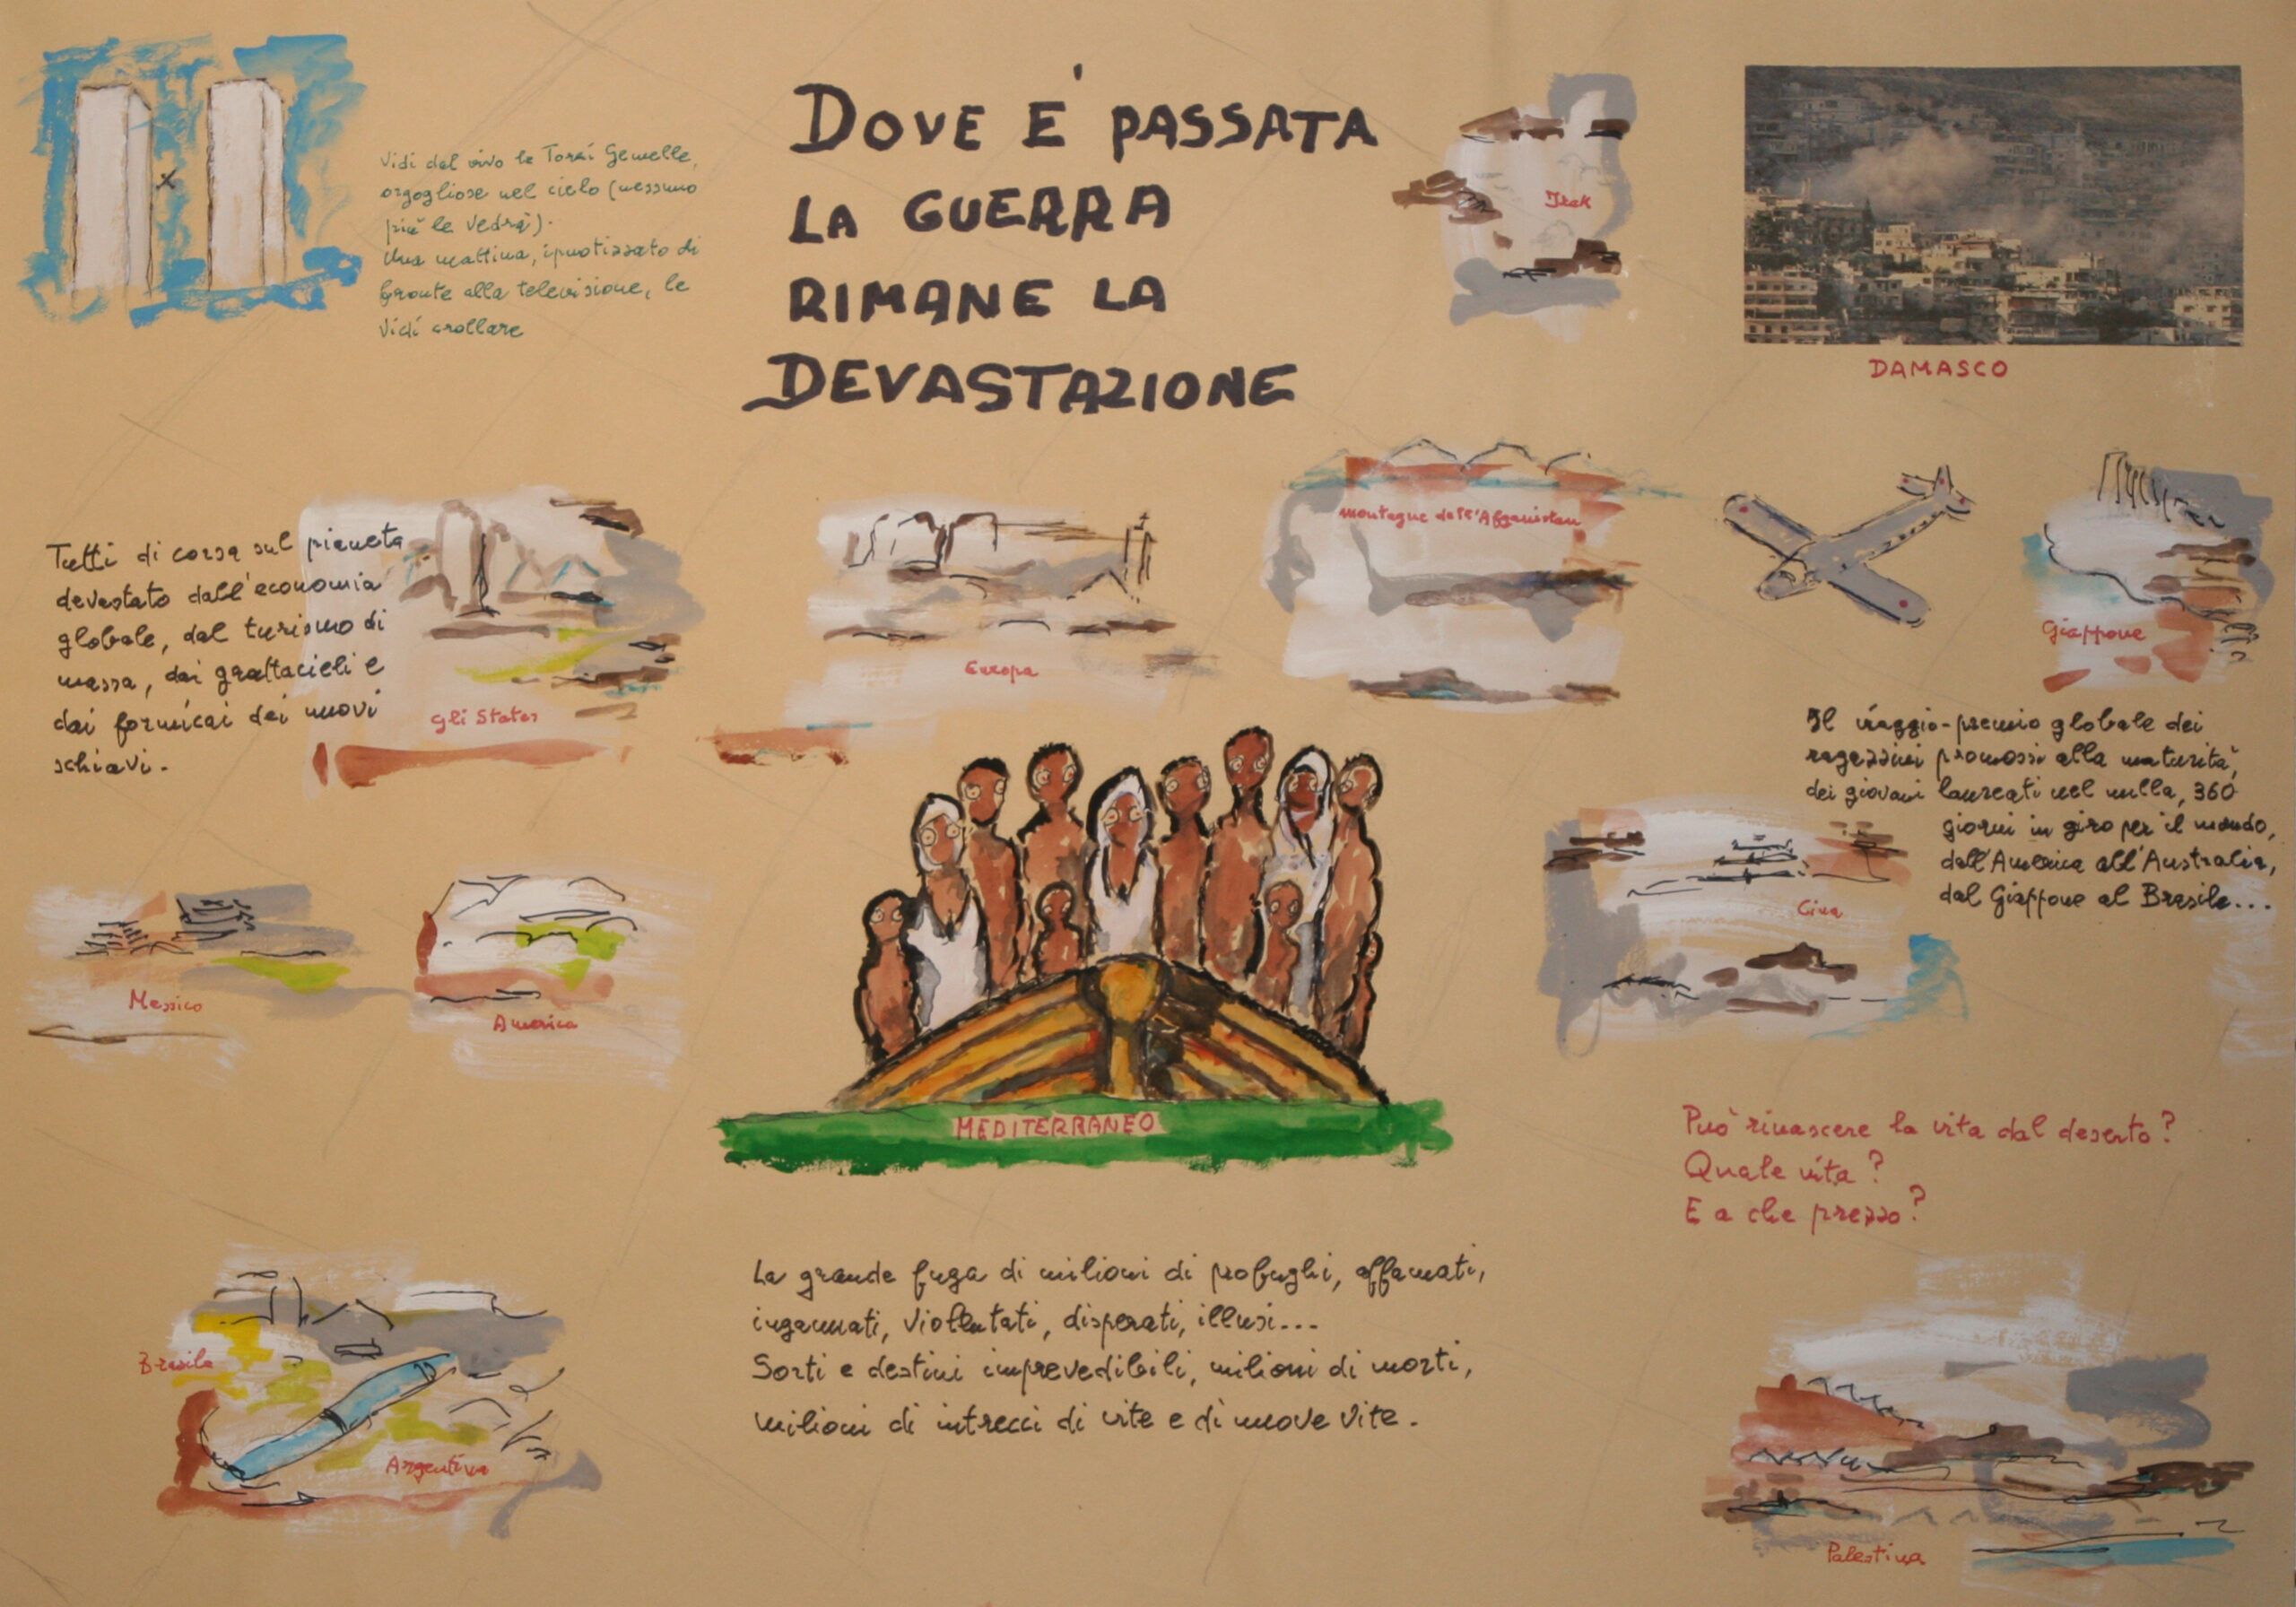 Vidi dal vivo le Torri Gemelle,
orgogliose nel cielo (nessuno
più le vedrà).
Una mattina, ipnotizzato di
fronte alla televisione, le
vidi crollare
DOVE E' PASSATA
LA GUERRA
RIMANE LA
DEVASTAZIONE
Irak
DAMASCO
Tutti di corsa sul pianeta
devastato dall'economia
globale, dal turismo di
massa, dai grattacieli e
dai formicai dei nuovi
schiavi.
gli States
Europa
montagne dell'Afganistan
Giappone
Il viaggio-premio globale dei
ragazzini promossi alla maturità,
dei giovani laureati nel nulla, 360
giorni in giro per il mondo,
dall'America all'Australia,
dal Giappone al Brasile...
Messico
America
Cina
MEDITERRANEO
Può rinascere la vita dal deserto?
Quale vita?
E a che prezzo?
La grande fuga di milioni di profughi, affamati,
ingannati, violentati, disperati, illusi...
Sorti e destini imprevedibili, milioni di morti,
milioni di intrecci di vite e di nuove vite.
Brasile
Argentina
Palestina